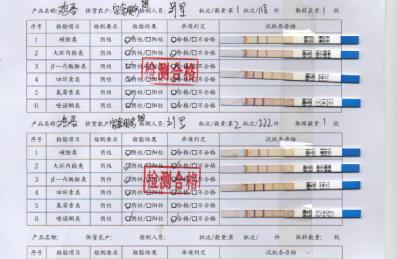 产品名称: 鸡蛋 供货农户: 检测人员: 批次/数量:第1批次/118杆 取样数量:1枚
序号 检验项目 检测要求 检验结果 单项判定 试纸条存档
1 磺胺类 阴性 ☑阴性/□阳性 ☑合格/□不合格
2 大环内酯类 阴性 ☑阴性/□阳性 ☑合格/□不合格
3 β-内酰胺类 阴性 ☑阴性/□阳性 ☑合格/□不合格
4 四环素类 阴性 ☑阴性/□阳性 ☑合格/□不合格
5 氟霉素类 阴性 ☑阴性/□阳性 ☑合格/□不合格
6 喹诺酮类 阴性 ☑阴性/□阳性 ☑合格/□不合格
检测合格
产品名称: 鸡蛋 供货农户: 检测人员: 批次/数量:第2批次/222杆 取样数量:1枚
序号 检验项目 检测要求 检验结果 单项判定 试纸条存档
1 磺胺类 阴性 ☑阴性/□阳性 ☑合格/□不合格
2 大环内酯类 阴性 ☑阴性/□阳性 ☑合格/□不合格
3 β-内酰胺类 阴性 ☑阴性/□阳性 ☑合格/□不合格
4 四环素类 阴性 ☑阴性/□阳性 ☑合格/□不合格
5 氟霉素类 阴性 ☑阴性/□阳性 ☑合格/□不合格
6 喹诺酮类 阴性 ☑阴性/□阳性 ☑合格/□不合格
检测合格
产品名称: 供货农户: 检测人员: 批次/数量:第 批次/ 杆 取样数量: 枚
序号 检验项目 检测要求 检验结果 单项判定 试纸条存档
1 磺胺类 阴性 □阴性/□阳性 □合格/□不合格